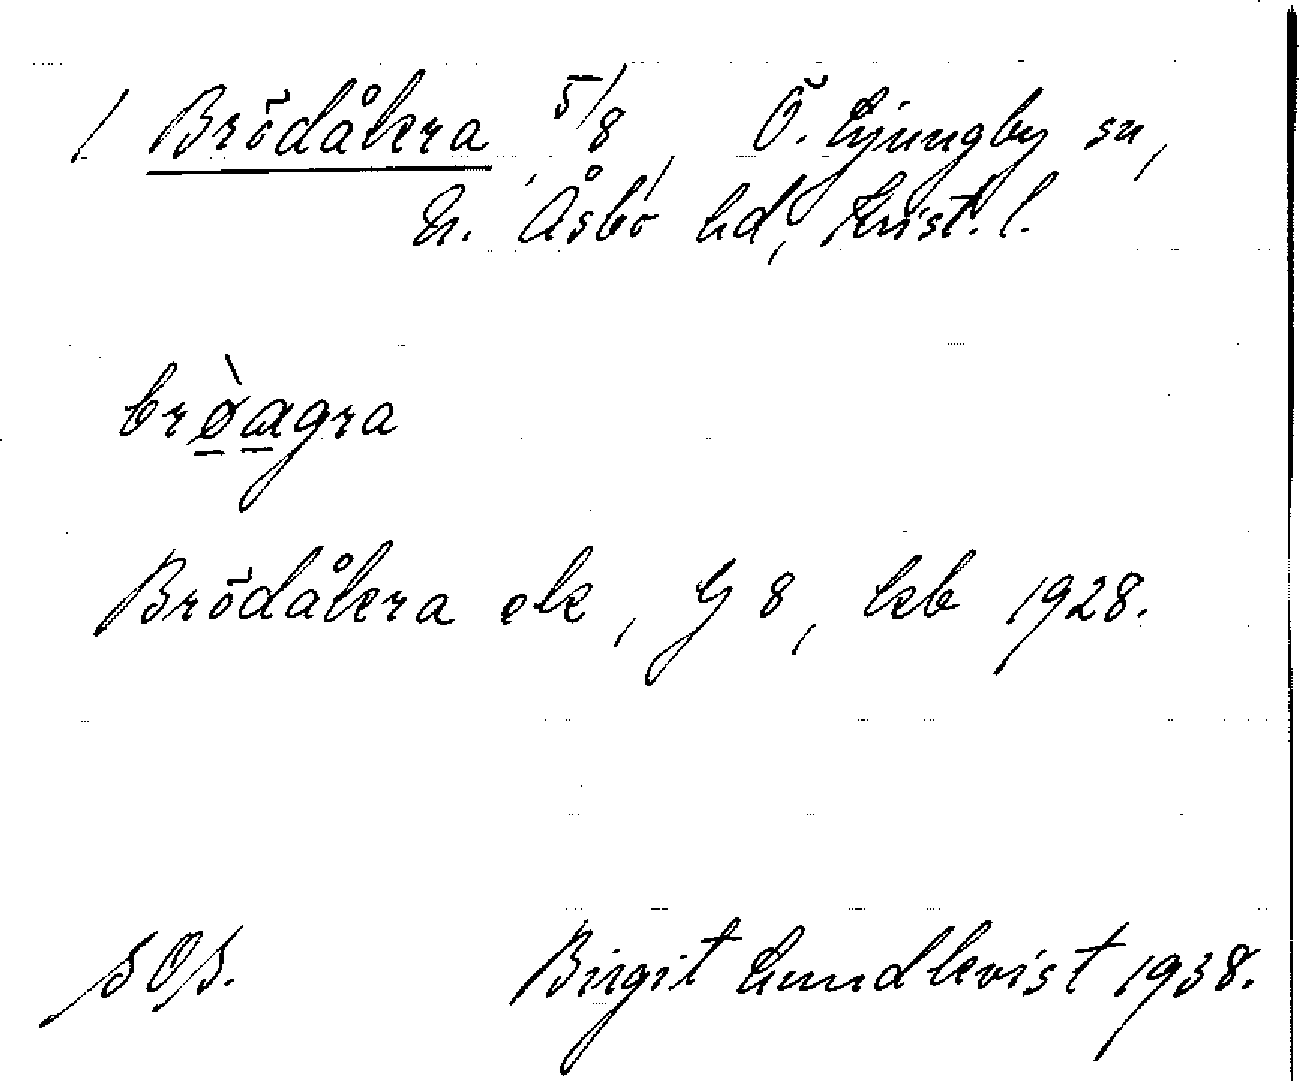 / Brödåkra 5/8, Ö. Ljungby sn,
N. Åsbo hd, Krist. l.
brø̀agra
Brödåkra ek, G 8, kb 1928.
Birgit Lundkvist 1938.